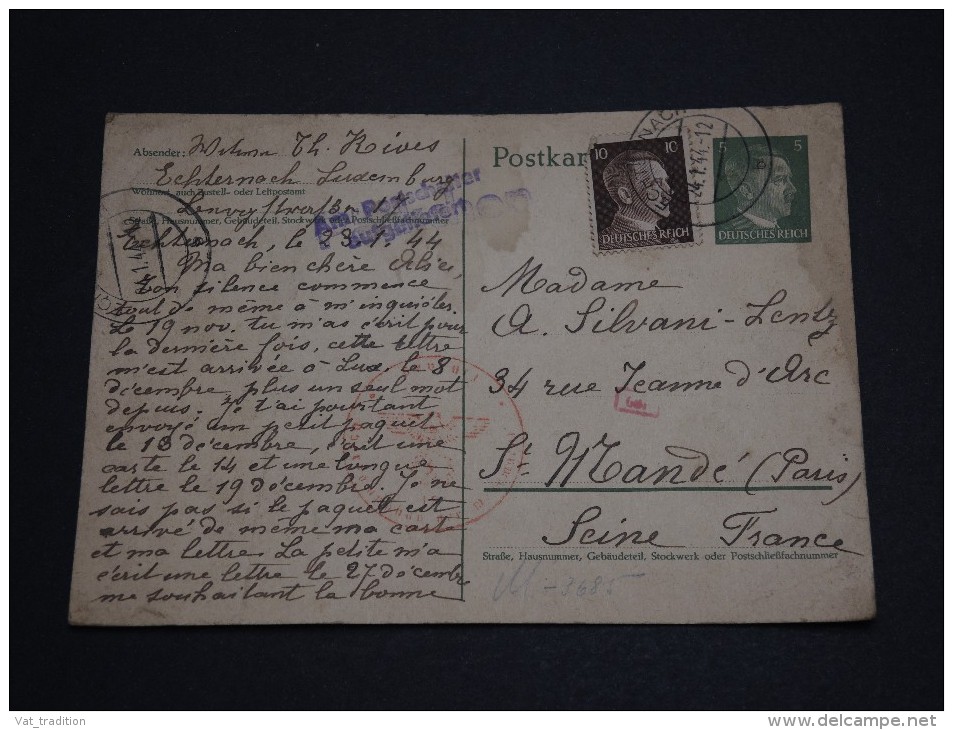 Absender: Th. Kives
Echternach Luxemburg
Wohnort, auch Zustell- oder Leitpostamt
Straße, Hausnummer, Gebäudeteil, Stockwerk oder Postschließfachnummer
Am Postschalter
Echternach, le 23.1.44
Ma bien chère Alice,
Ton silence commence
tout de même à m'inquiéter.
Le 19 nov. tu m'as écrit pour
la dernière fois, cette lettre
m'est arrivée à Lux. le 8
décembre, plus un seul mot
depuis. Je t'ai pourtant
envoyé un petit paquet
le 13 décembre, écrit une
carte le 14 et une longue
lettre le 19 décembre. Je ne
sais pas si le paquet est
arrivé de même ma carte
et ma lettre. La petite m'a
écrit une lettre le 27 décembre
me souhaitant la bonne
Postkar
10 10
DEUTSCHES REICH
NACH
24.1.44-12
5 5
DEUTSCHES REICH
Madame
A. Silvani-Lentz
34 rue Jeanne d'Arc
St Mandé (Paris)
Seine France
Straße, Hausnummer, Gebäudeteil, Stockwerk oder Postschließfachnummer
-3685
Vat_tradition
www.delcampe.net